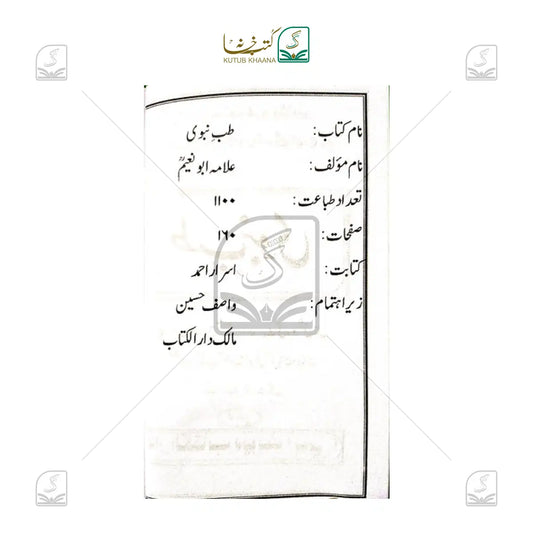 کتب خانہ
KUTUB KHAANA
نام کتاب: طب نبوی
نام مؤلف: علامہ ابو نعیمؒ
تعداد طباعت: ۱۱۰۰
صفحات: ۱۶۰
کتابت: اسرار احمد
زیر اہتمام: واصف حسین
مالک دار الکتاب